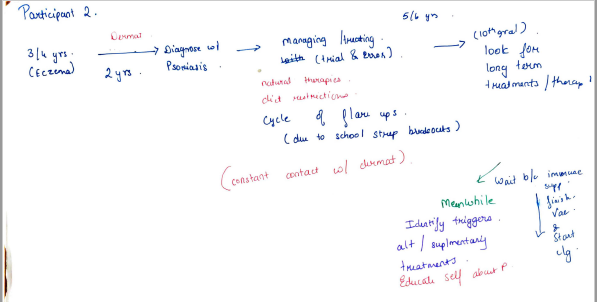 Participant 2.
5/6 yrs.
Dermat
3/4 yrs.
(Eczema)
2 yrs.
Diagnose w/
Psoriasis
Managing /treating
with (trial & error)
natural therapies
diet restrictions
Cycle of flare ups.
(due to school strep breakouts)
(10th gra)
look for
long term
treatments / therap
(constant contact w/ dermat)
Wait b/c immune
supp.
finish
Vac
&
Start
Meanwhile
Identify triggers.
alt / suplmentary
treatments.
Educate self about P